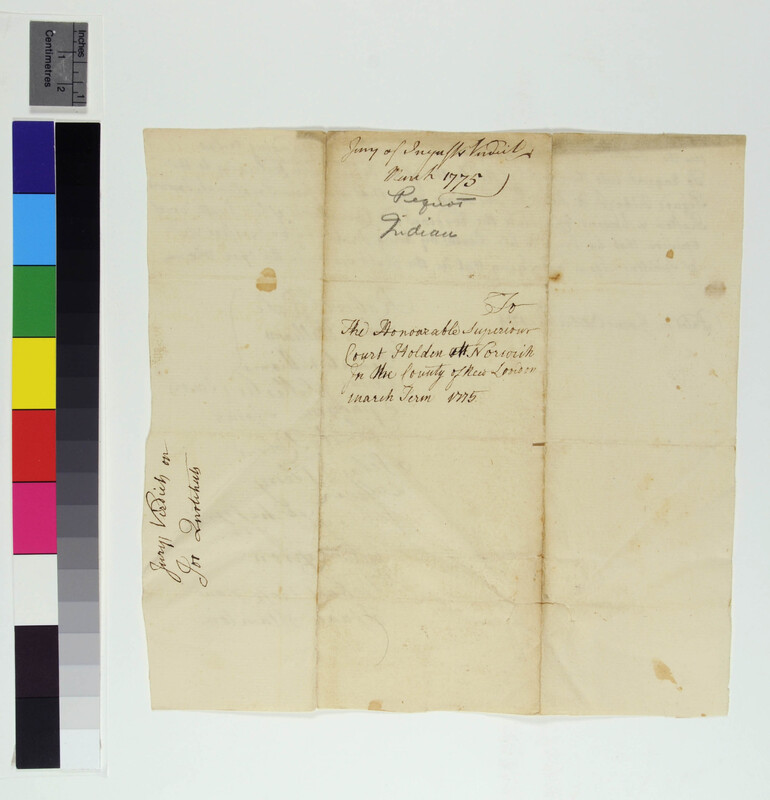 Inches
1
Centimetres
1
2
Jury of Inquests Verdict
March 1775
Pequot
Indian
To
The Honourable Superiour
Court Holden att Norwich
In the County of New London
march Term 1775
Jurys Verdict on
Joe